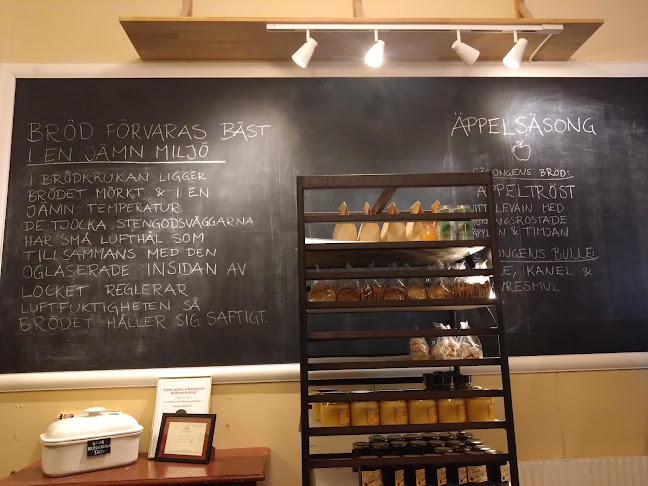 BRÖD FÖRVARAS BÄST
I EN JÄMN MILJÖ
I BRÖDKRUKAN LIGGER
BRÖDET MÖRKT & I EN
JÄMN TEMPERATUR.
DE TJOCKA STENGODSVÄGGARNA
HAR SMÅ LUFTHÅL SOM
TILLSAMMANS MED DEN
OGLASERADE INSIDAN AV
LOCKET REGLERAR
LUFTFUKTIGHETEN SÅ
BRÖDET HÅLLER SIG SAFTIGT.
ÄPPELSÄSONG
BRÖD:
ÄPPELTRÖST
LEVAIN MED
ROSTADE
& TIMJAN
BULLE:
KANEL &